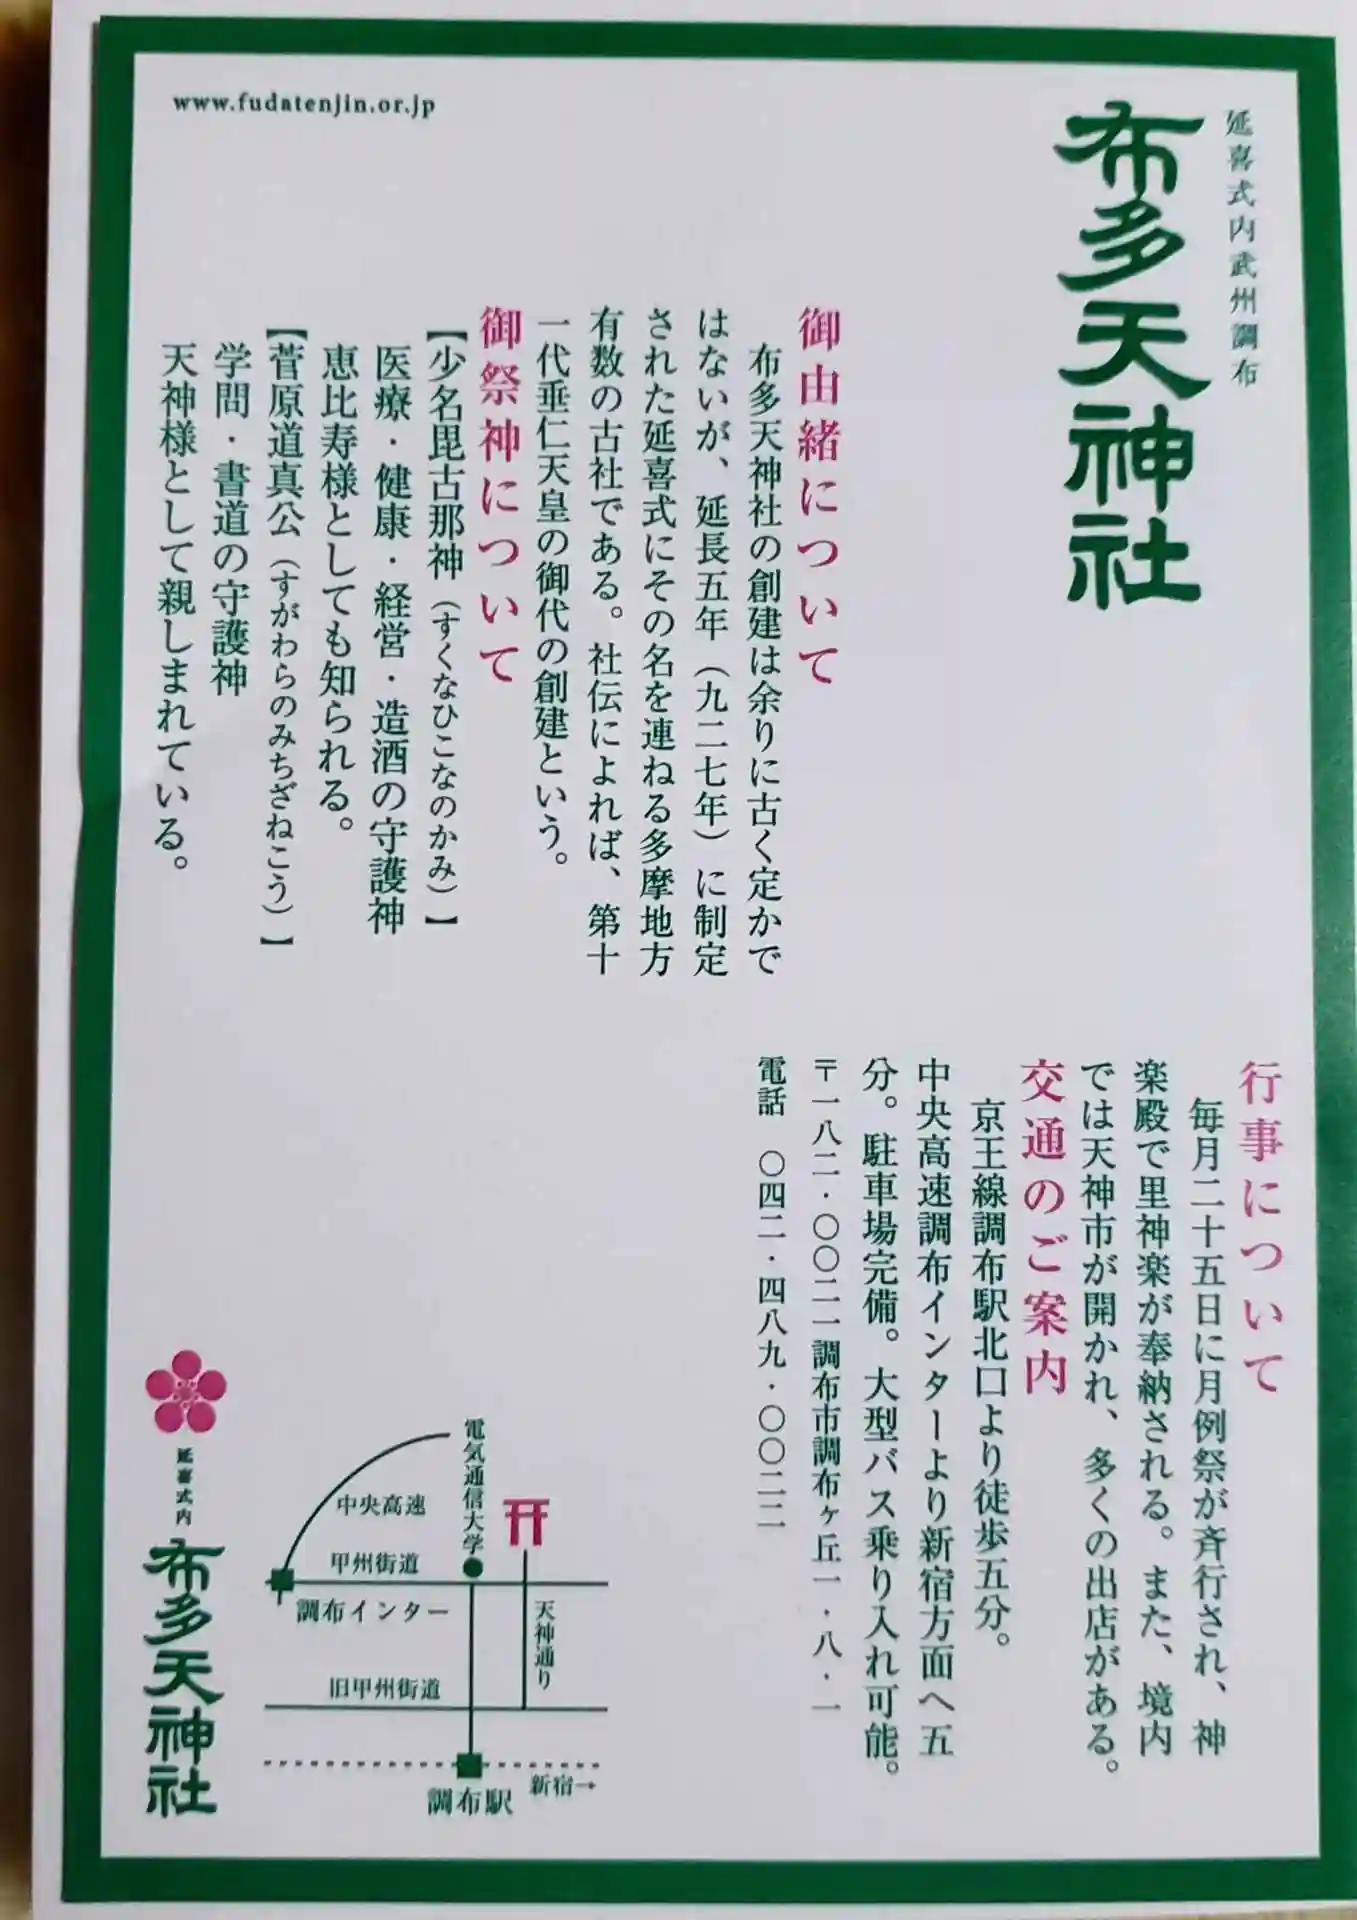 www.fudatenjin.or.jp
延喜式内武州調布
布多天神社
御由緒について
布多天神社の創建は余りに古く定かで
はないが、延長五年（九二七年）に制定
された延喜式にその名を連ねる多摩地方
有数の古社である。社伝によれば、第十
一代垂仁天皇の御代の創建という。
御祭神について
【少名毘古那神（すくなひこなのかみ）】
医療・健康・経営・造酒の守護神
恵比寿様としても知られる。
【菅原道真公（すがわらのみちざねこう）】
学問・書道の守護神
天神様として親しまれている。
行事について
毎月二十五日に月例祭が斉行され、神
楽殿で里神楽が奉納される。また、境内
では天神市が開かれ、多くの出店がある。
交通のご案内
京王線調布駅北口より徒歩五分。
中央高速調布インターより新宿方面へ五
分。駐車場完備。大型バス乗り入れ可能。
〒一八二・〇〇二一調布市調布ヶ丘一・八・一
電話 〇四二・四八九・〇〇二二
電気通信大学
中央高速
甲州街道
調布インター
天神通り
旧甲州街道
新宿→
調布駅
延喜式内
布多天神社